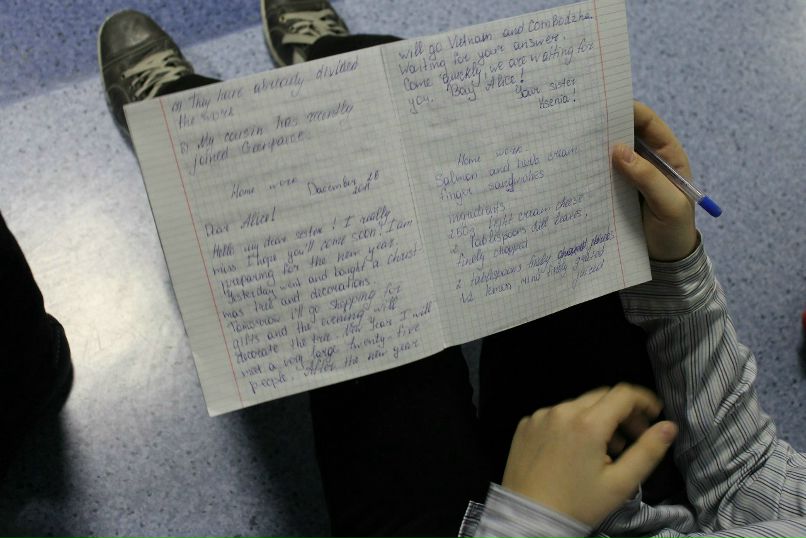 a) They have already divided
the work
b) My cousin has recently
joined Greenpeace.
Home work
December 28
Dear Alice!
Hello my dear sister! I really
miss. I hope you'll come soon! I am
preparing for the new year.
Yesterday went and bought a christ
mas tree and decorations.
Tomorrow I'll go shopping for
gifts and the evening will
decorate the tree. New Year I will
meet a very large twenty-five
people. After the new year
will go Vietnam and Combodzha.
Waiting for your answer.
Come quickly, we are waiting for
you. Bay, Alice!
Your sister
Ksenia!
Home work
Salmon and herb cream
finger sandwiches
250g light cream cheese
2 tablespoons dill leaves,
finely chopped
2 tablespoons finely
1/2 lemon rind finely grated